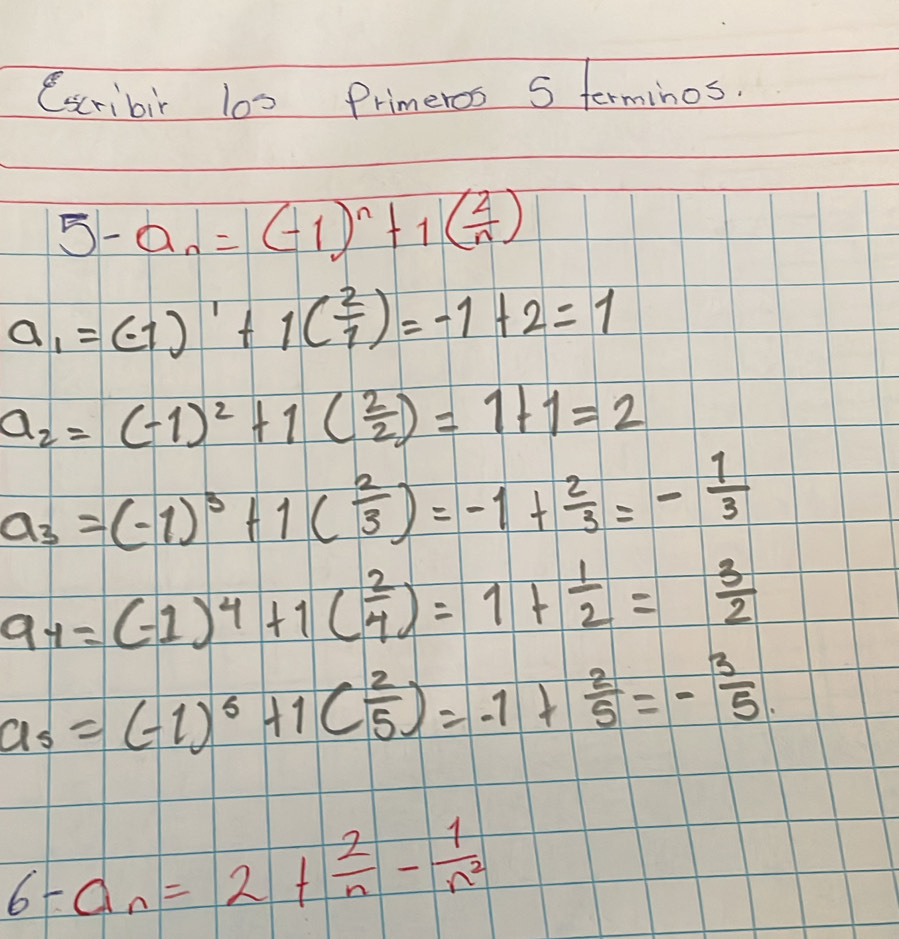 Escribir los Primeros 5 terminos.
5- aₙ = (-1)ⁿ + 1(2/n)
a₁ = (-1)¹ + 1(2/1) = -1 + 2 = 1
a₂ = (-1)² + 1(2/2) = 1 + 1 = 2
a₃ = (-1)³ + 1(2/3) = -1 + 2/3 = - 1/3
a₄ = (-1)⁴ + 1(2/4) = 1 + 1/2 = 3/2
a₅ = (-1)⁵ + 1(2/5) = -1 + 2/5 = - 3/5.
6- aₙ = 2 + 2/n - 1/n²